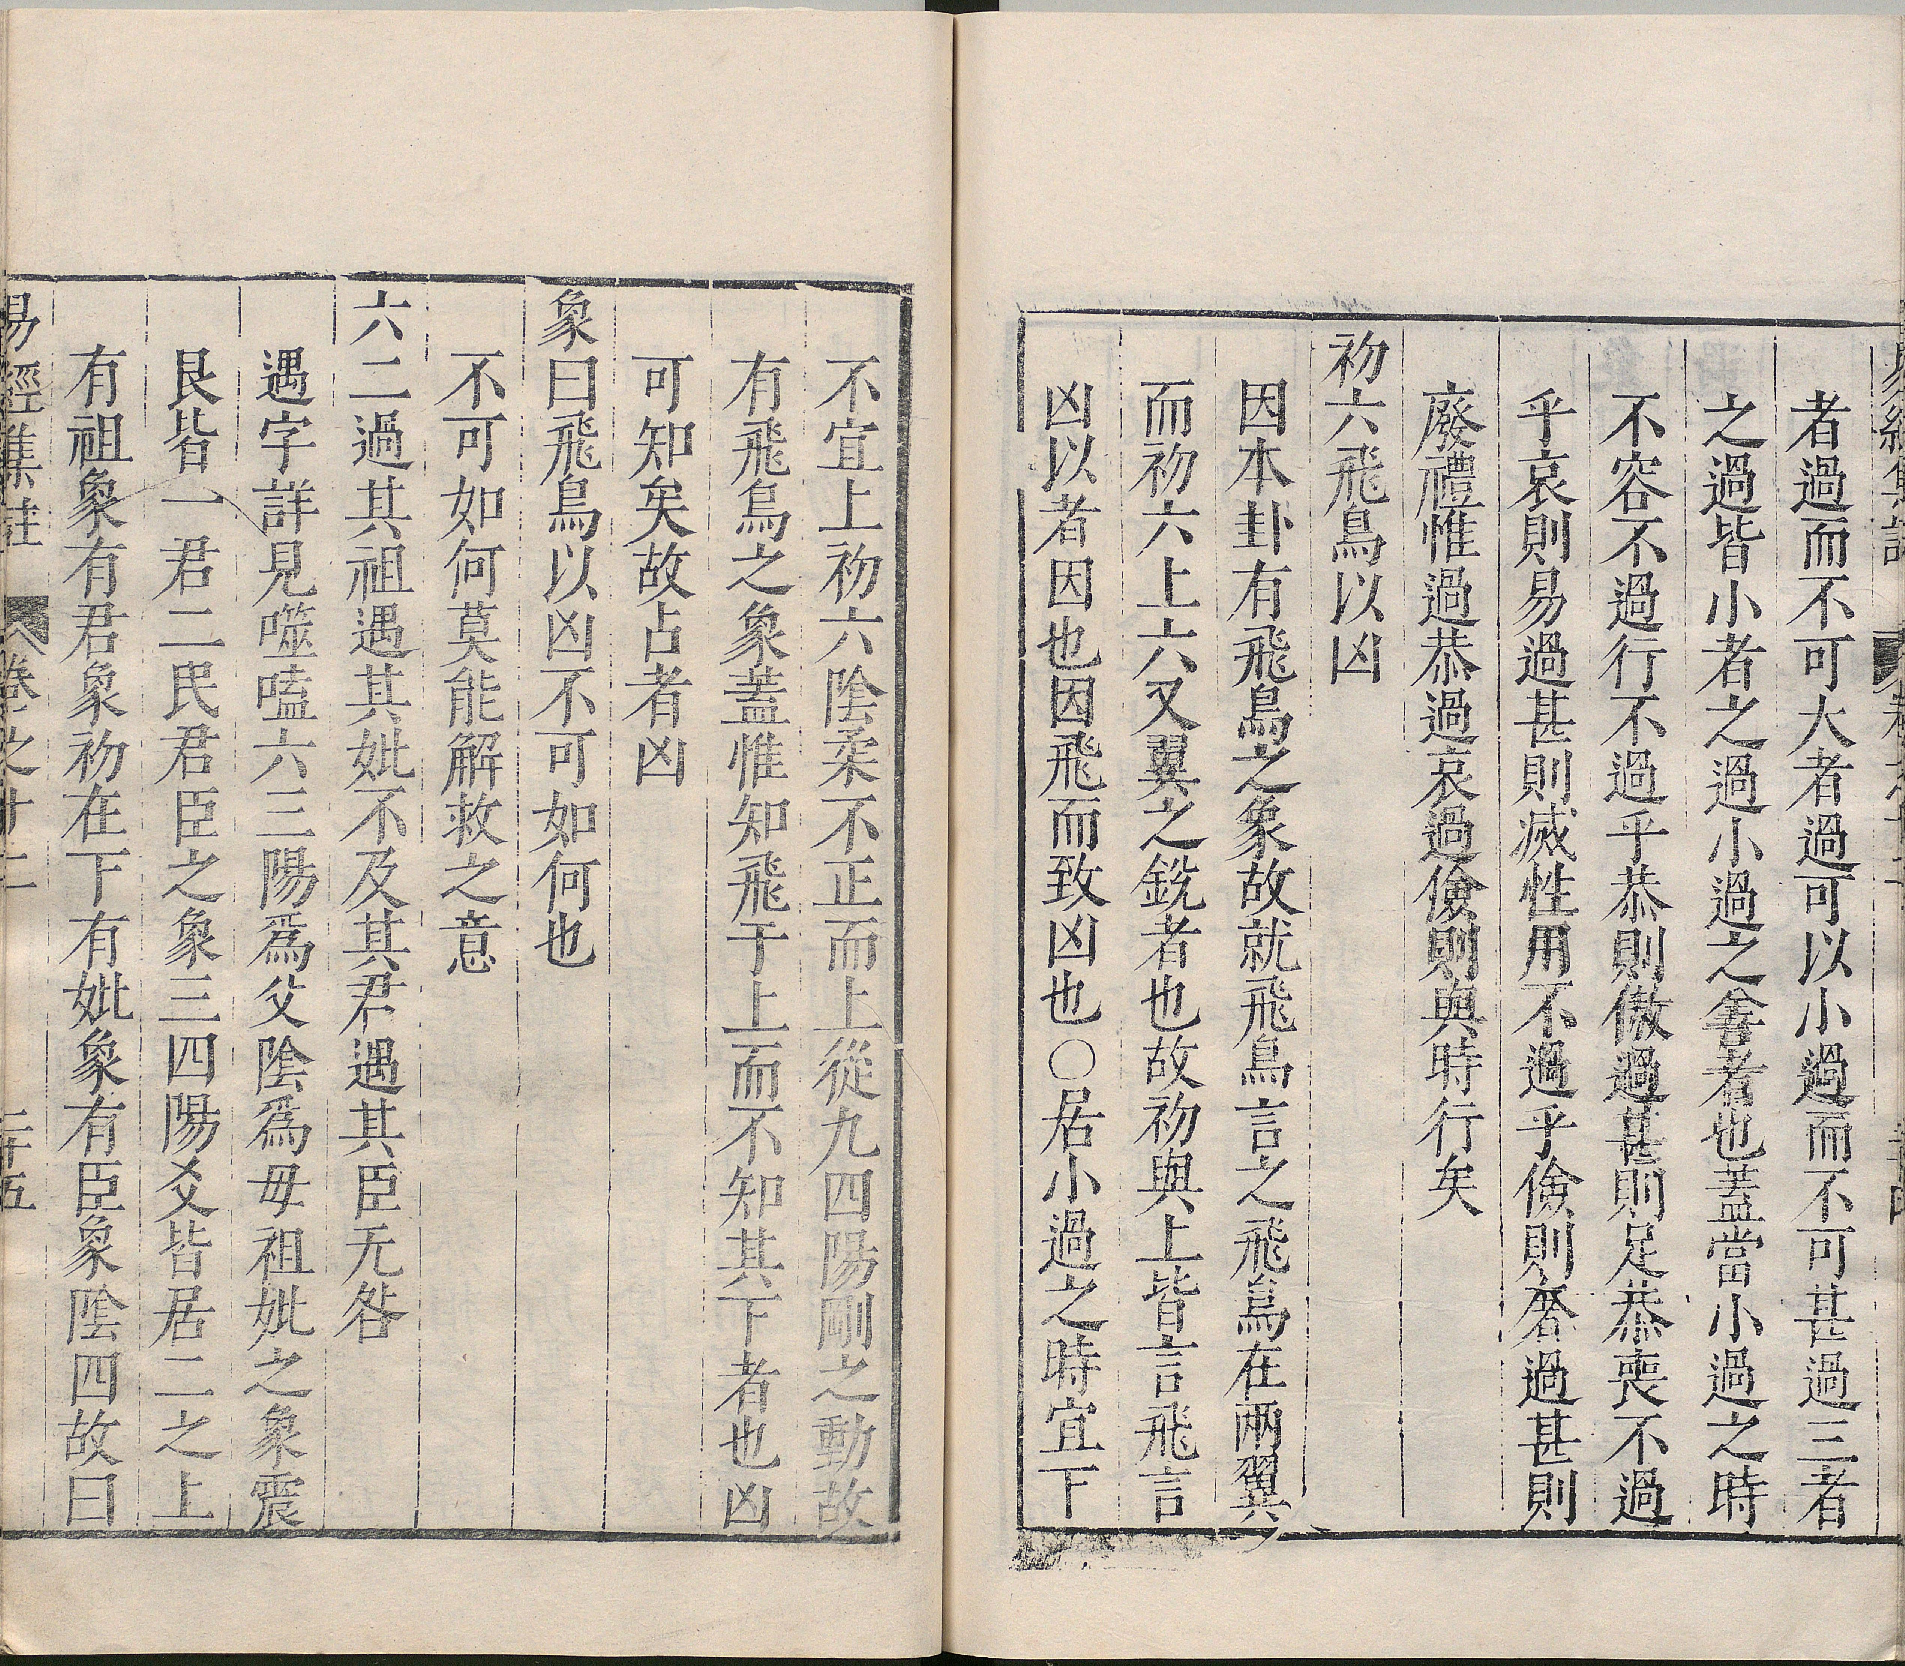 者過而不可大者過可以小過而不可甚過三者
之過皆小者之過小過之善者也蓋當小過之時
不容不過行不過乎恭則傲過甚則足恭喪不過
乎哀則易過甚則滅性用不過乎儉則奢過甚則
廢禮惟過恭過哀過儉則與時行矣
初六飛鳥以凶
因本卦有飛鳥之象故就飛鳥言之飛鳥在兩翼
而初六上六又翼之銳者也故初與上皆言飛言
凶以者因也因飛而致凶也○居小過之時宜下
不宜上初六陰柔不正而上從九四陽剛之動故
有飛鳥之象蓋惟知飛于上而不知其下者也凶
可知矣故占者凶
象曰飛鳥以凶不可如何也
不可如何莫能解救之意
六二過其祖遇其妣不及其君遇其臣无咎
遇字詳見噬嗑六三陽爲父陰爲母祖妣之象震
艮皆一君二民君臣之象三四陽爻皆居二之上
有祖象有君象初在下有妣象有臣象陰四故曰
易經集註 卷之十二 二十五